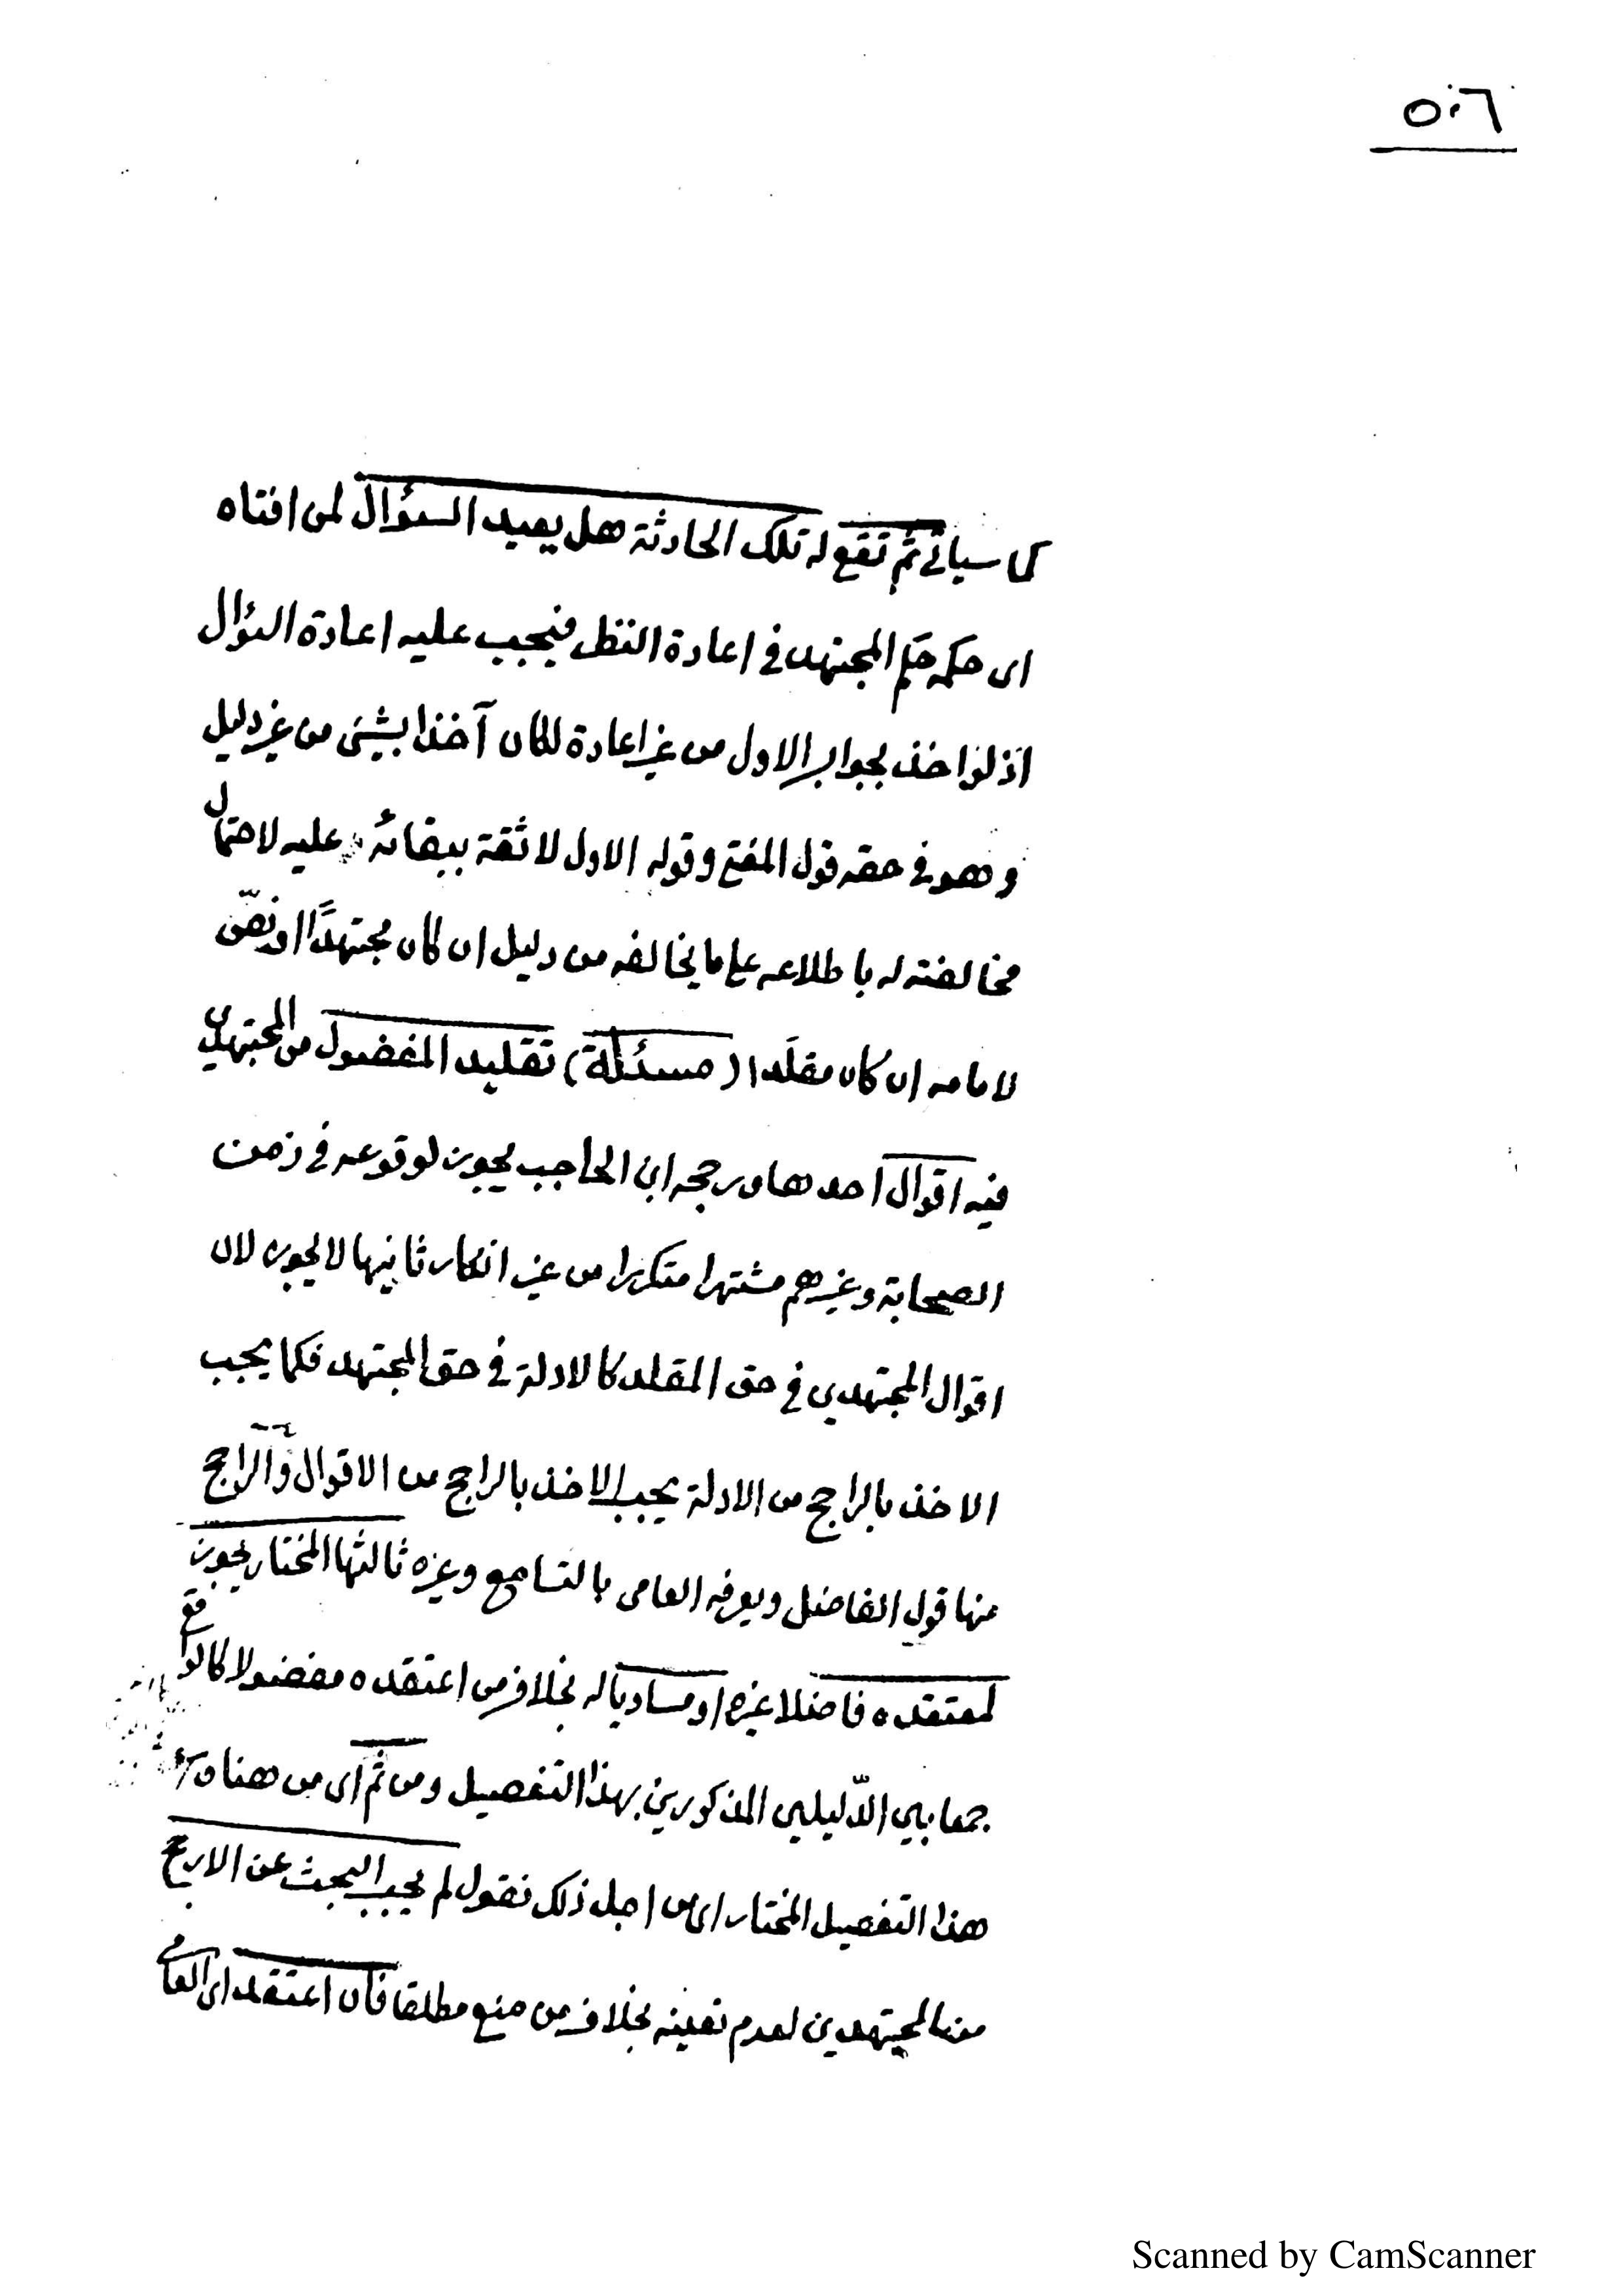 ٥٠٦
كما سيأتي ثم تقع له تلك الحادثة هل يعيد السئوال لمن افتاه
اى حكمه حكم المجتهد في اعادة النظر فيجب عليه اعادة السؤال
اذ لو اخذ بجواب الاول من غير اعادة لكان آخذا بشيئ من غير دليل
وهو في حقه قول المفتي وقوله الاول لا ثقة ببقائه عليه لاحتمال
مخالفته له باطلاعه على ما يخالفه من دليل ان كان مجتهدًا او نصّ
لامامه ان كان مقلَدا (مسئلة) تقليد المفضول من المجتهدين
فيه اقوال احدها ورجحه ابن الحاجب يجوز لوقوعه في زمن
الصحابة وغيرهم مشتهرا متكررا من غير انكار ثانيها لا يجوز لان
اقوال المجتهدين في حق المقلد كالادلة في حق المجتهد فكما يجب
الاخذ بالراجح من الادلة يجب الاخذ بالراجح من الاقوال والراجح
منها قول الفاضل ويعرفه العامى بالتسامع وغيره ثالثها المختار يجوز
لمعتقده فاضلا غيره او مساويا له بخلاف من اعتقده مفضولا كالواقع
جمعا بين الدّليلين المذكورين بهذا التفصيل ومن ثم اى من هنا وهو
هذا التفصيل المختار اى من اجل ذلك نقول لم يجب البحث عن الارجح
من المجتهدين لعدم تعينه بخلاف من منع مطلقا فان اعتقد اى العامي
Scanned by CamScanner